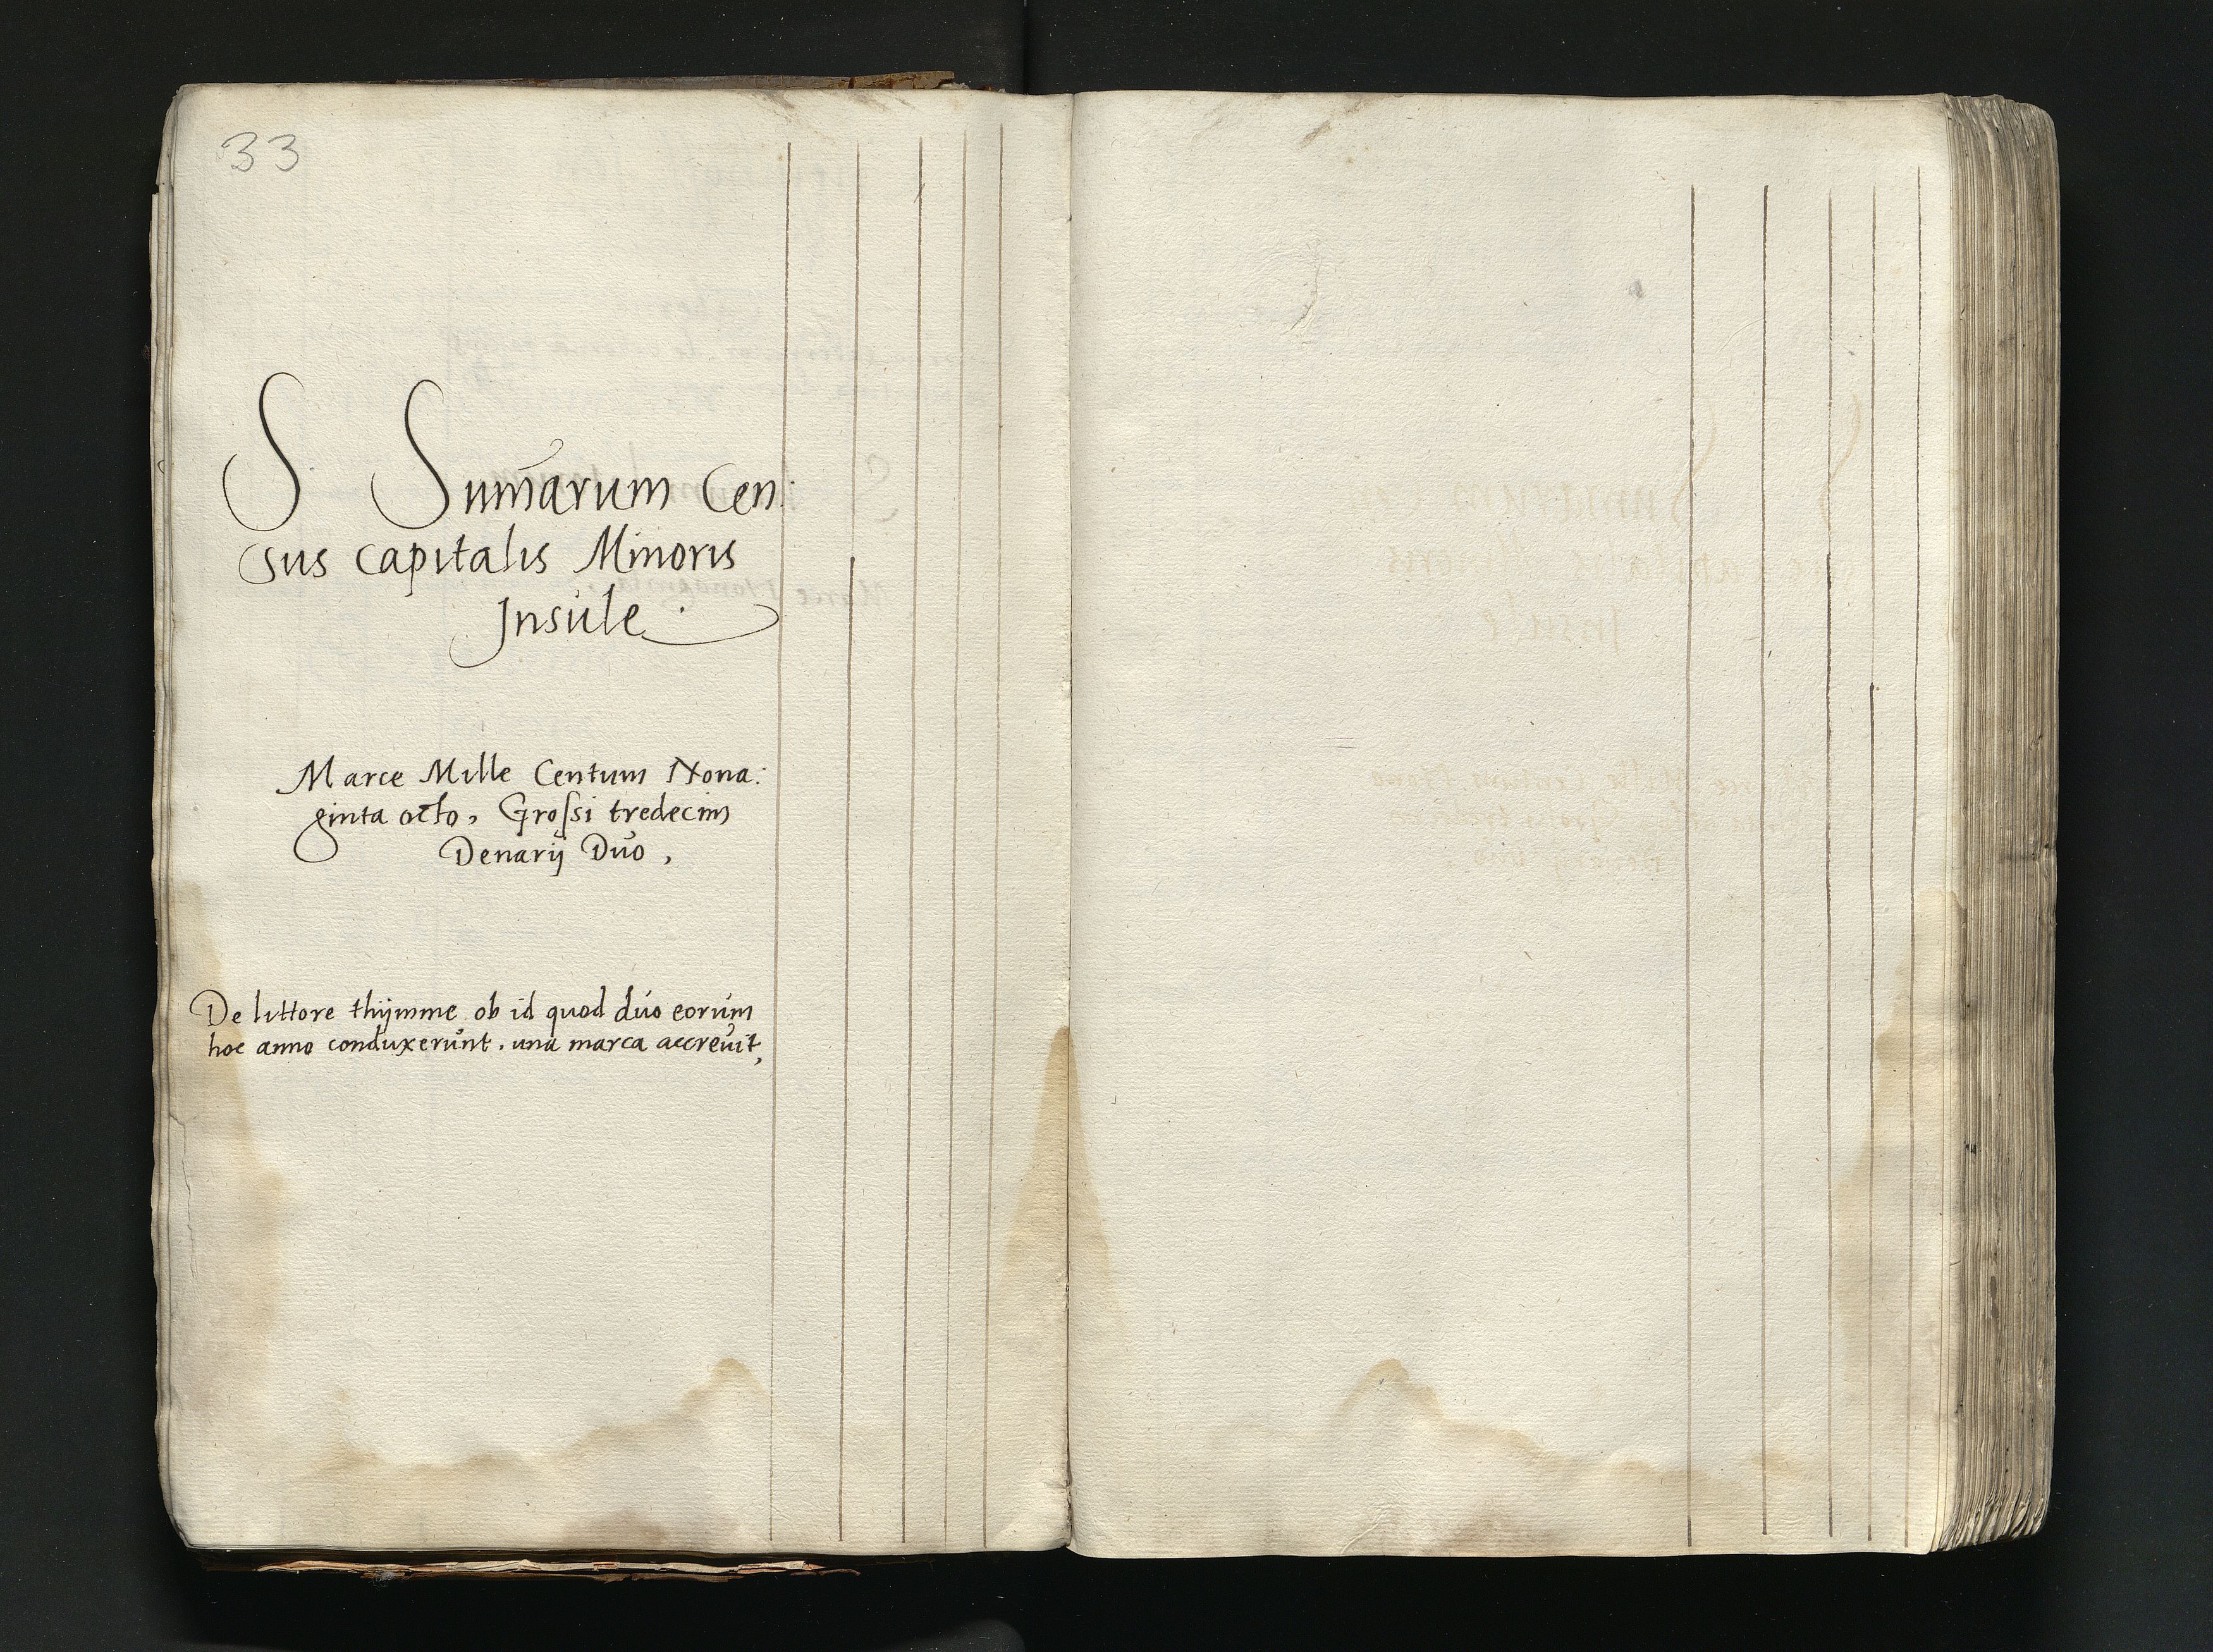 33
S Sum̃arum Cen:
sus capitalis Minoris
Insule.
Marce Mille Centum Nona:
ginta octo, Groſsi tredecim
Denarij Duo,
De littore thijmme ob id quod duo eorum
hoc anno conduxerunt, una marca accreuit,